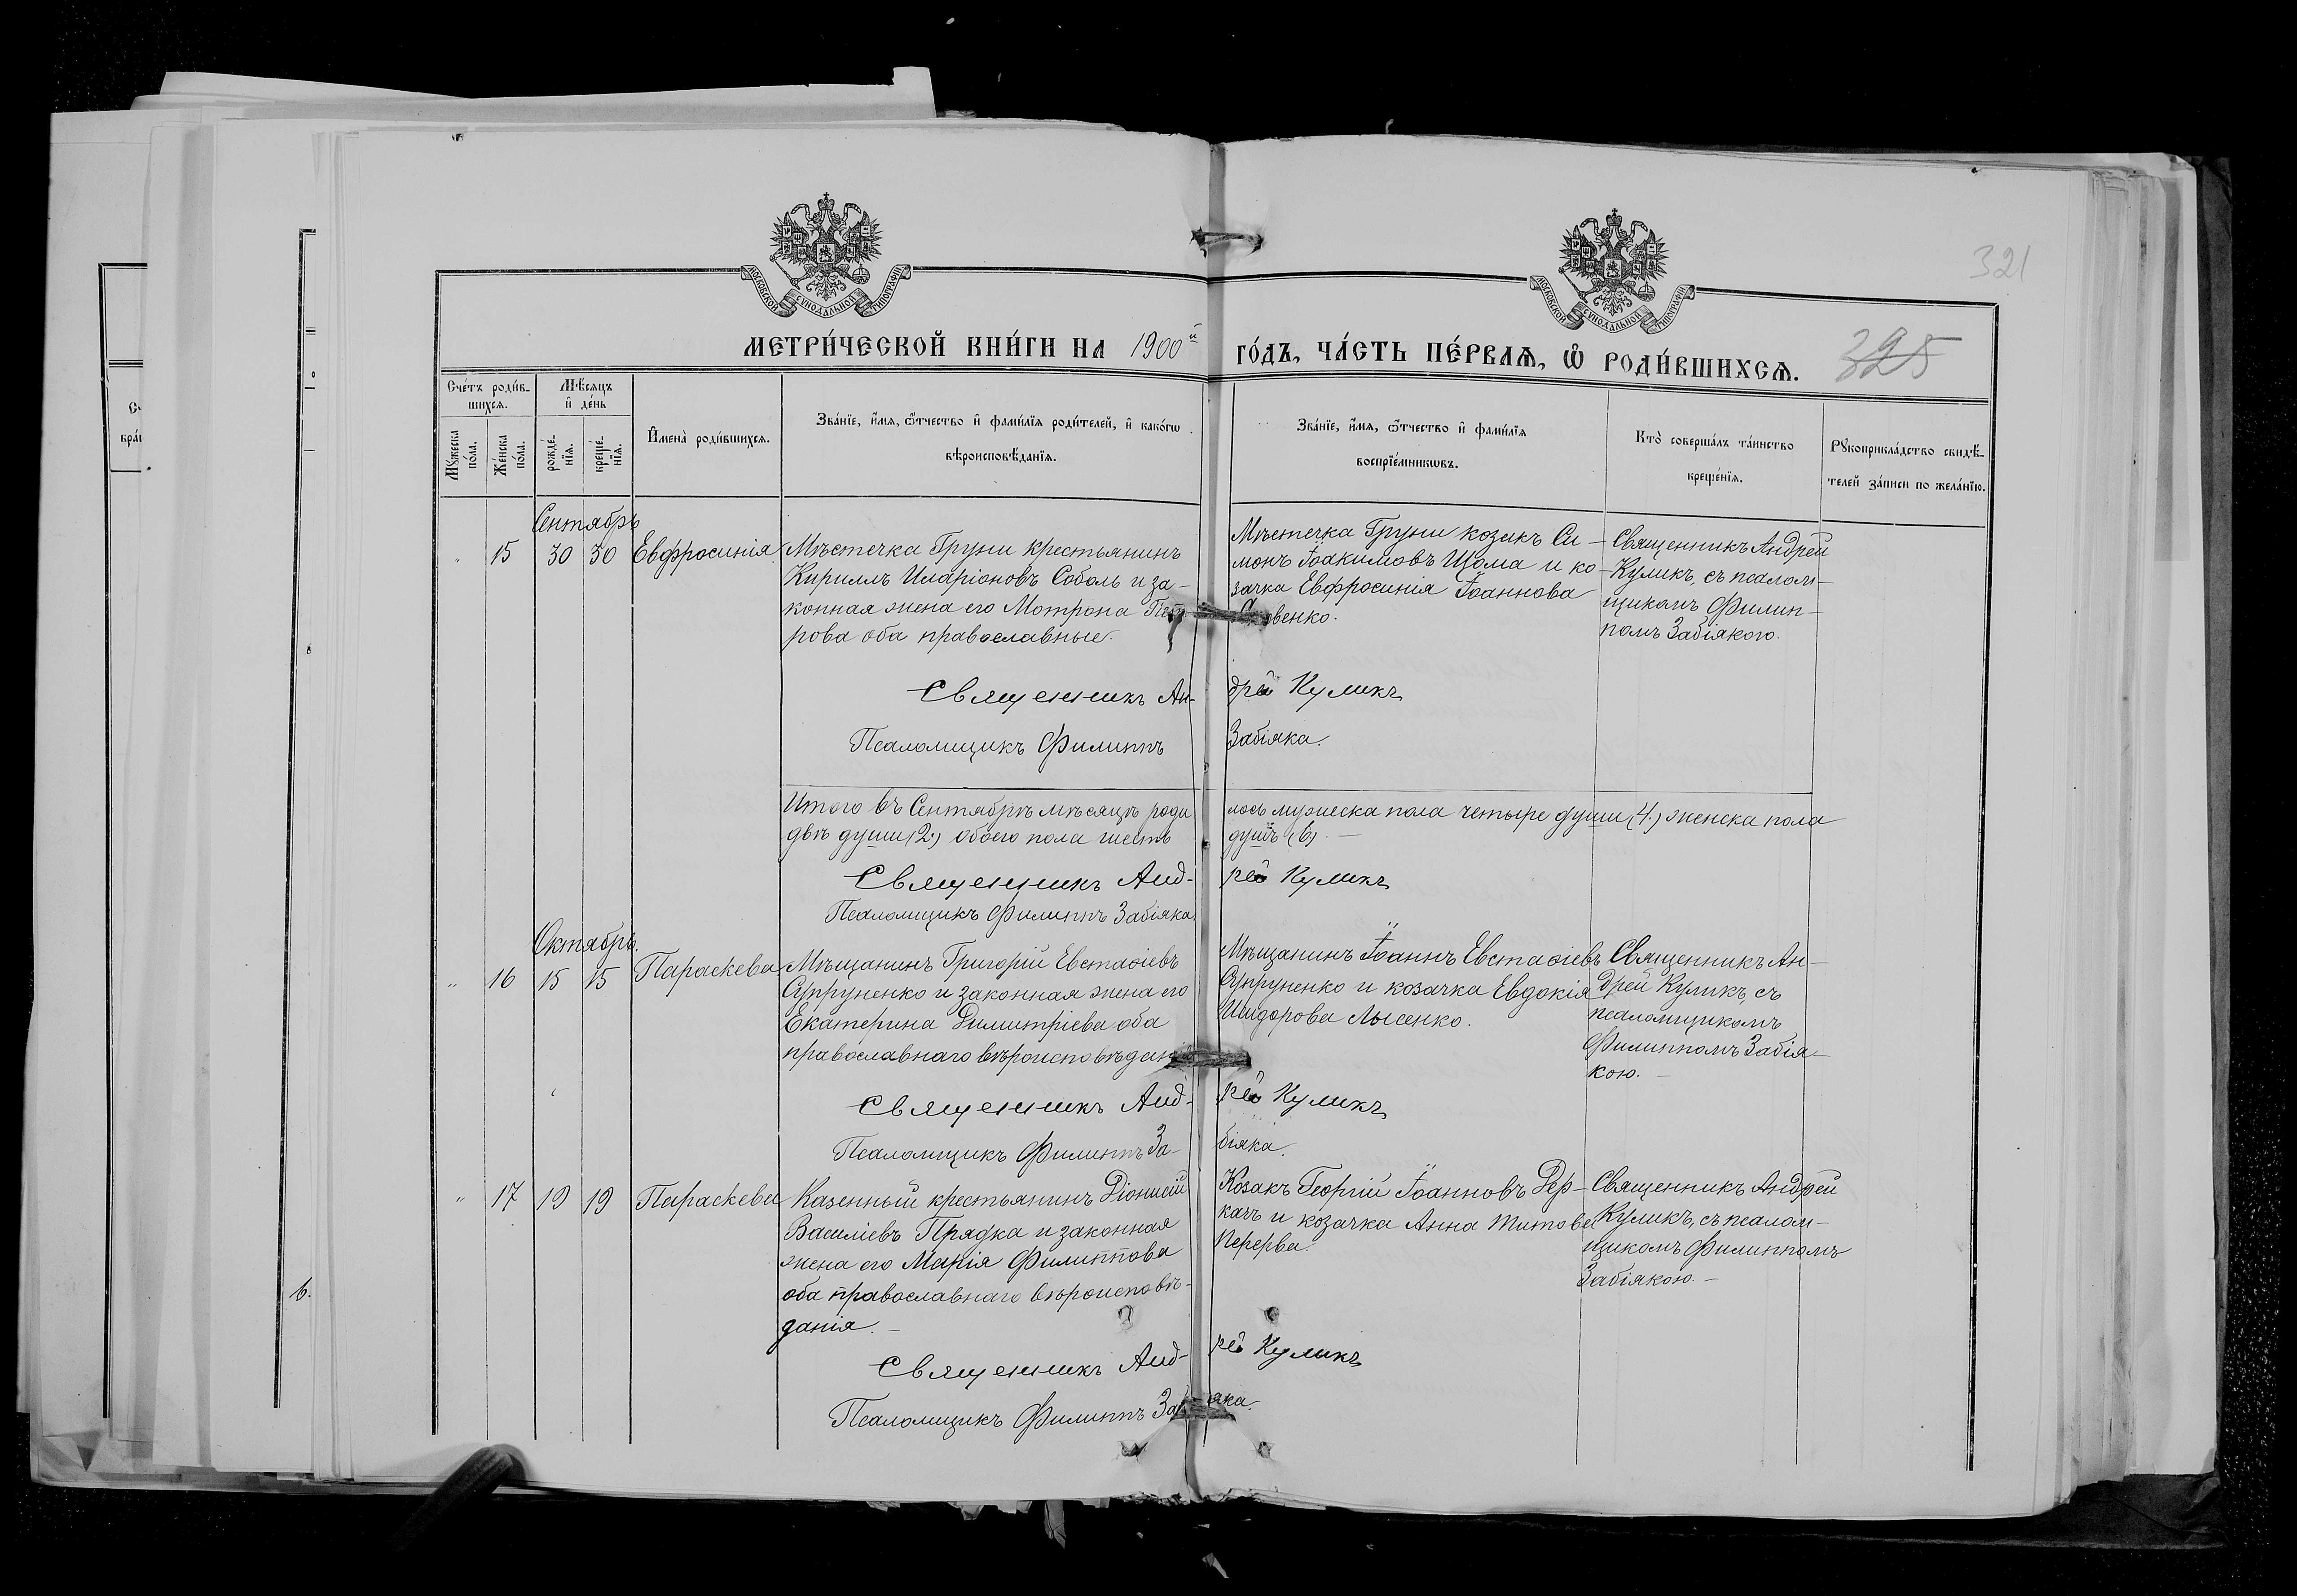 МОСКОВСКОЙ СѴНОДАЛЬНОЙ ТИПОГРАФІИ
МОСКОВСКОЙ СѴНОДАЛЬНОЙ ТИПОГРАФІИ
321
МЕТРИ́ЧЕСКОЙ КНИ́ГИ НА 1900й ГО́ДЪ, ЧА́СТЬ ПЕ́РВАѦ, Ѡ҆ РОДИ́ВШИХСѦ.
325
Сче́тъ роди́в-
шихсѧ.
Мѣ́сѧцъ
и҆ де́нь
Мꙋ́жеска
по́ла.
Же́нска
по́ла.
рожде́-
нїѧ.
креще́-
нїѧ.
И҆мена̀ роди́вшихсѧ.
Зва́нїе, и҆́мѧ, ѻ҆́тчество и҆ фами́лїѧ роди́телей, и҆ како́гѡ
вѣроисповѣ́данїѧ.
Зва́нїе, и҆́мѧ, ѻ҆́тчество и҆ фами́лїѧ
воспрїе́мникѡвъ.
Кто̀ соверша́лъ та́инство
креще́нїѧ.
Рꙋкоприкла́дство свидѣ́-
телей за́писи по жела́нїю.
Сентябрь
" 15 30 30 Евфросинія
Мѣстечка Груни крестьянинъ
Кириллъ Иларіоновъ Соболь и за-
конная жена его Мотрона Пет
рова оба православные.
Мѣстечка Груни козакъ Си-
монъ Іоакимовъ Щома и ко-
зачка Евфросинія Іоаннова
венко.
Священникъ Андрей
Куликъ, съ псалом-
щикомъ Филип-
помъ Забіякою.
Священникъ Ан-
дрей Куликъ
Псаломщикъ Филиппъ
Забіяка.
Итого въ Сентябрѣ мѣсяцѣ роди
лось мужеска пола четыре души (4.) женска пола
двѣ души (2.) обоего пола шесть
душъ (6). —
Священникъ Анд-
рей Куликъ
Псаломщикъ Филиппъ Забіяка.
Октябрь.
" 16 15 15 Параскева
Мѣщанинъ Григорій Евстаѳіевъ
Супруненко и законная жена его
Екатерина Димитріева оба
православнаго вѣроисповѣдан
Мѣщанинъ Іоаннъ Евстаѳіевъ
Супруненко и козачка Евдокія
Исидорова Лысенко.
Священникъ Ан-
дрей Куликъ, съ
псаломщикомъ
Филиппомъ Забія-
кою. —
Священникъ Анд-
рей Куликъ
Псаломщикъ Филиппъ За-
біяка.
" 17 19 19 Параскева
Казенный крестьянинъ Діонисій
Василіевъ Прядка и законная
жена его Марія Филиппова
оба православнаго вѣроисповѣ-
данія. —
Козакъ Георгій Іоанновъ Дер-
качъ и козачка Анна Титова
Перерва.
Священникъ Андрей
Куликъ, съ псалом-
щикомъ Филиппомъ
Забіякою. —
Священникъ Анд-
рей Куликъ
Псаломщикъ Филиппъ Заб
яка.
6.